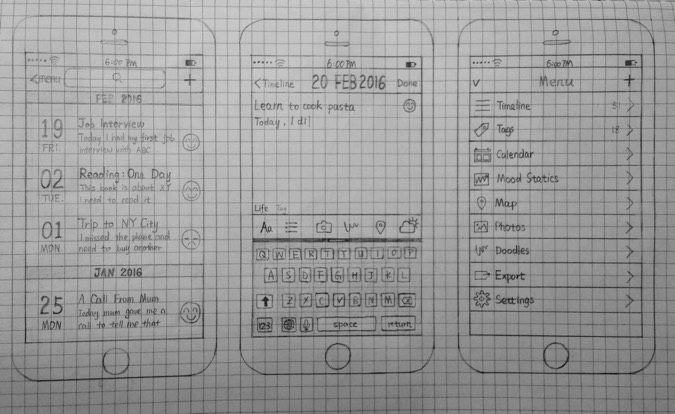 6:00 PM
<Menu
+
FEB 2016
19
FRI.
Job Interview
Today I had my first job
interview with ABC
02
TUE.
Reading: One Day
This book is about XY
I need to read it
01
MON.
Trip to NY City
I missed the plane and
need to buy another
JAN 2016
25
MON
A Call From Mum
Today mum gave me a
call to tell me that
6:00 PM
< Timeline
20 FEB 2016
Done
Learn to cook pasta
Today, I di|
Life Tag
Aa
Q W E R T Y U I O P
A S D F G H J K L
Z X C V B N M
123
space
return
6:00 PM
Menu
+
Timeline
31 >
Tags
18 >
Calendar >
Mood Statics >
Map >
Photos >
Doodles >
Export >
Settings >